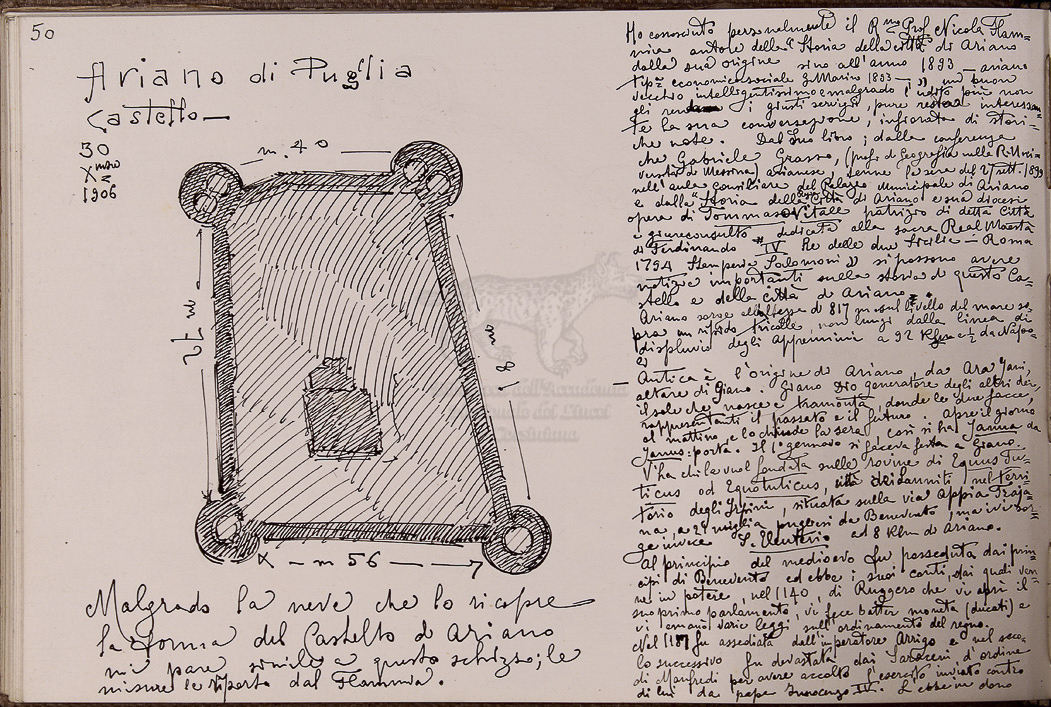 50
Ariano di Puglia
Castello
30
Xmbre
1906
m. 40
m 56
Malgrado la neve che lo ricopre
la forma del Castello d'Ariano
mi pare simile a questo schizzo; le
misure le riporto dal Flammia.
Ho conosciuto personalmente il Rmo Prof. Nicola Flam-
mia autore della "Storia della città di Ariano
dalla sua origine sino all'anno 1893 - Ariano
tipa economico sociale G. Marino 1893 - " un buon
vecchio intelligentissimo e malgrado l'udito più non
gli renda i giusti servigi, pure interessan-
te la sua conversazione, infiorata di stori-
che note. Dal suo libro; dalla conferenza
che Gabriele Grasso, (prof. di Geografia nella R. Univ-
ersità di Messina) arianese, tenne la sera del 27 sett. 1899
nell'aula Consiliare del Palazzo Municipale di Ariano
e dalla "Storia della Città di Ariano e sua diocesi
opera di Tommaso Vitale patrizio di detta Città
e giureconsulto dedicata alla sacra Real Maestà
di Ferdinando IV Re delle due Sicilie - Roma
1794 Stamperia Salomoni " si possono avere
notizie importanti sulla storia di questo Ca-
stello e della città di Ariano.
Ariano sorge all'altezza di 817 m. sul livello del mare so-
pra un ripido tricolle, non lungi dalla linea di
displuvio degli Appennini a 92 Klm e ½ da Napo-
li
Antica è l'origine di Ariano, da Ara Jani,
altare di Giano. Giano Dio generatore degli altri dei,
il sole che nasce e tramonta, donde le due facce,
rappresentanti il passato e il futuro. Apre il giorno
al mattino, e lo chiude la sera. Così si ha Janua da
Janus: porta. Il 1° gennaio si faceva festa a Giano.
V'ha chi la vuol fondata sulle rovine di Equus Tu-
ticus od Equotuticus, città dei Sanniti nel terri-
torio degli Irpini, situata sulla via Appia Traja-
na, a 21 miglia pugliesi da Benevento, ma ivi sor-
ge invece S. Eleuterio ad 8 klm di Ariano.
Al principio del medioevo fu posseduta dai prin-
cipi di Benevento ed ebbe i suoi conti, dai quali ven-
ne in potere, nel 1140, di Ruggero che vi aprì il
suo primo parlamento, vi fece batter moneta (ducati) e
vi emanò varie leggi sull'ordinamento del regno.
Nel 1187 fu assediata dall'imperatore Arrigo e nel seco-
lo successivo fu devastata dai Saraceni, d'ordine
di Manfredi per avere accolto l'esercito inviato contro
di lui da papa Innocenzo IV. L'ebbe in dono